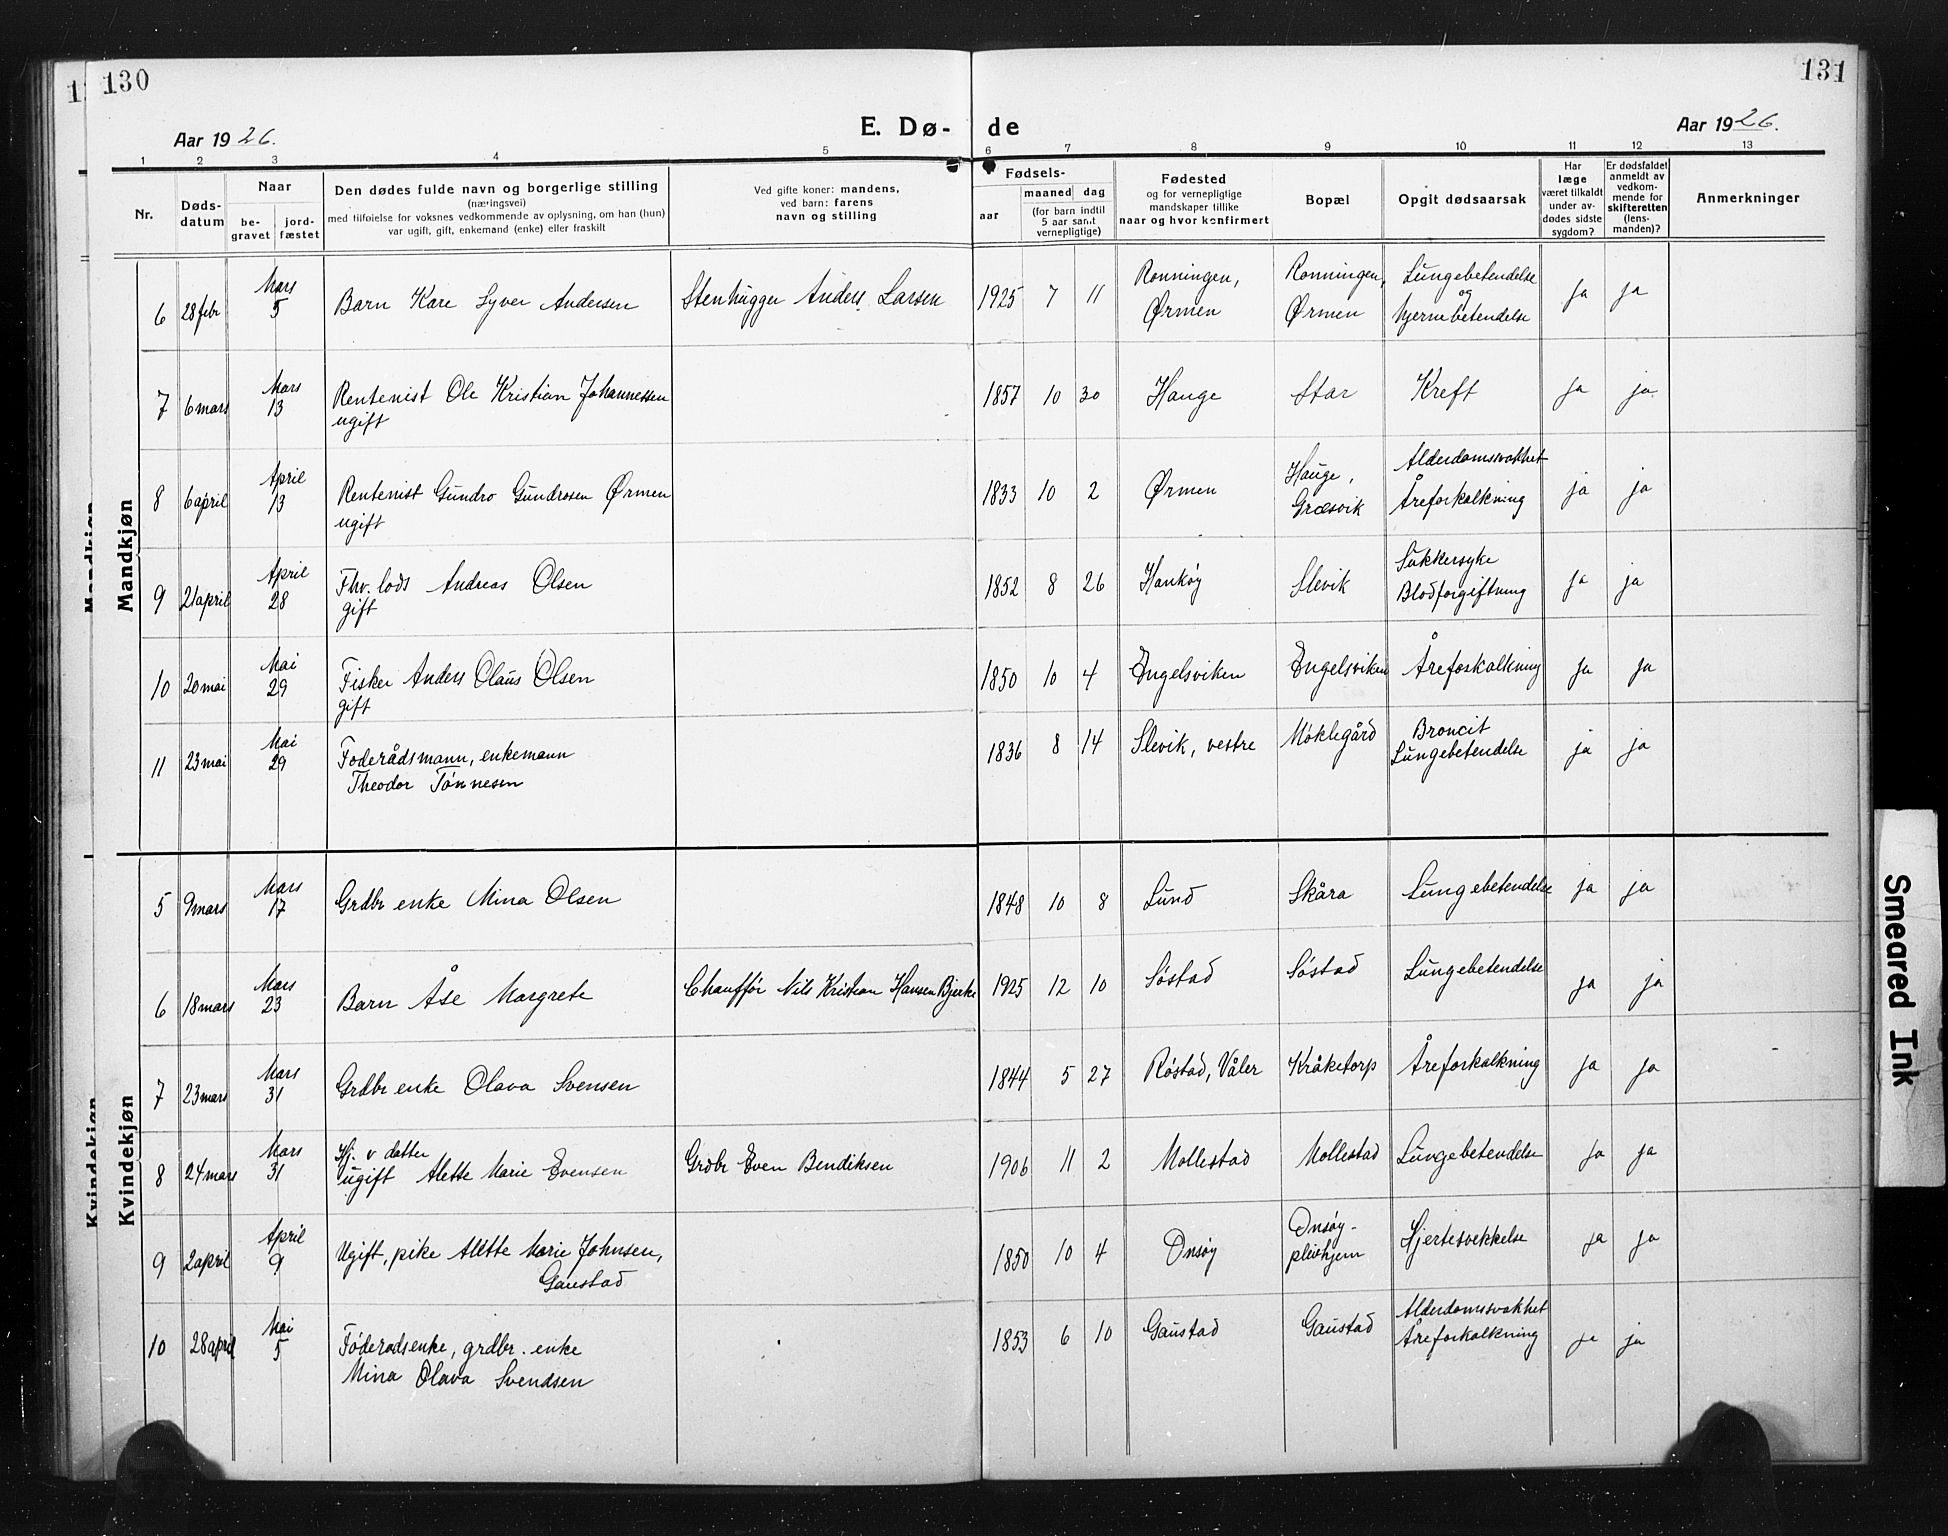 130
131
Aar 1926.
E. Dø-
de
Aar 1926.
1 2 3 4 5 6 7 8 9 10 11 12 13
Nr.
Døds-
datum
Naar
be-
gravet
jord-
fæstet
Den dødes fulde navn og borgerlige stilling
(næringsvei)
med tilføielse for voksnes vedkommende av oplysning, om han (hun)
var ugift, gift, enkemand (enke) eller fraskilt
Ved gifte koner: mandens,
ved barn: farens
navn og stilling
Fødsels-
aar
maaned dag
(for barn indtil
5 aar samt
vernepligtige)
Fødested
og for vernepligtige
mandskaper tillike
naar og hvor konfirmert
Bopæl
Opgit dødsaarsak
Har
læge
været tilkaldt
under av-
dødes sidste
sygdom?
Er dødsfaldet
anmeldt av
vedkom-
mende for
skifteretten
(lens-
manden)?
Anmerkninger
Mandkjøn
6 28 febr Mars 5 Barn Kare Syver Andersen Stenhugger Anders Larsen 1925 7 11 Rønningen, Ørmen Rønningen, Ørmen Lungebetendelse og hjernebetendelse ja ja
7 6 mars Mars 13 Rentenist Ole Kristian Johannessen
ugift 1857 10 30 Hauge Star Kreft ja ja
8 6 april April 13 Rentenist Gundro Gundrosen Ørmen
ugift 1833 10 2 Ørmen Hauge, Græsvik Alderdomsvakhet Åreforkalkning ja ja
9 21 april April 28 Fhv. lods Andreas Olsen
gift 1852 8 26 Hankøy Slevik Sukkersyke Blodforgiftning ja ja
10 20 mai Mai 29 Fisker Anders Olaus Olsen
gift 1850 10 4 Engelsviken Engelsviken Åreforkalkning ja ja
11 23 mai Mai 29 Foderådsmann, enkemann
Theodor Tønnesen 1836 8 14 Slevik, vestre Møklegård Broncit Lungebetendelse ja ja
Kvindekjøn
5 9 mars Mars 17 Grdbr enke Mina Olsen 1848 10 8 Lund Skåra Lungebetendelse ja ja
6 18 mars Mars 23 Barn Åse Margrete Chauffør Nils Kristian Hansen Bjerke 1925 12 10 Søstad Søstad Lungebetendelse ja ja
7 23 mars Mars 31 Grdbr enke Olava Svensen 1844 5 27 Røstad, Våler Kråketorp Åreforkalkning ja ja
8 24 mars Mars 31 Hj. v datter
ugift Alette Marie Evensen Grdbr Even Bendiksen 1906 11 2 Mollestad Mollestad Lungebetendelse ja ja
9 2 april April 9 Ugift, pike Alette Marie Johnsen,
Gaustad 1850 10 4 Onsøy Onsøy- pleiehjem Hjertesvekkelse ja ja
10 28 april Mai 5 Føderadsenke, grdbr. enke
Mina Olava Svendsen 1853 6 10 Gaustad Gaustad Alderdomsvakhet Åreforkalkning ja ja
Smeared Ink